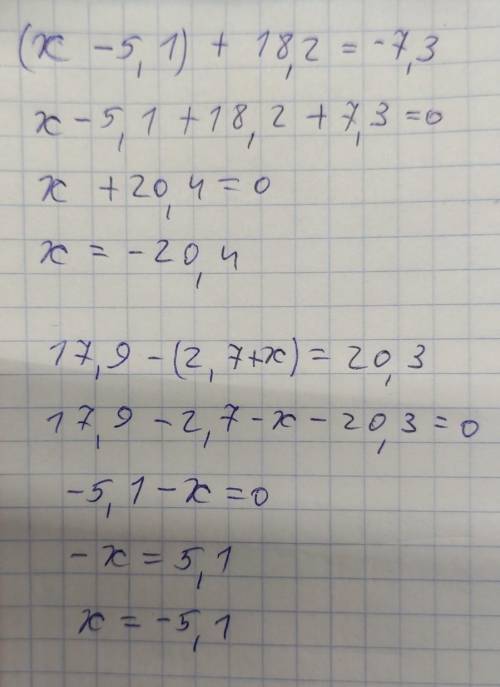 (x - 5,1) + 18,2 = -7,3
x - 5,1 + 18,2 + 7,3 = 0
x + 20,4 = 0
x = -20,4
17,9 - (2,7+x) = 20,3
17,9 - 2,7 - x - 20,3 = 0
-5,1 - x = 0
-x = 5,1
x = -5,1